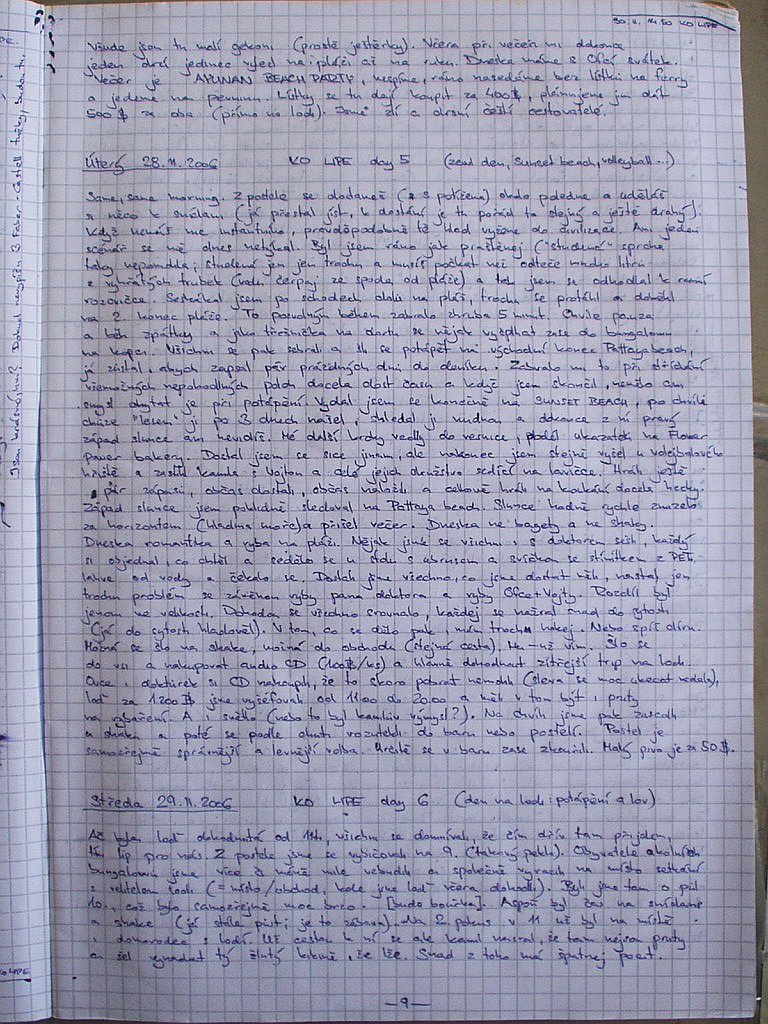 30.11. 14.50 KO LIPE
Všude jsou tu malí gekoni (prostě ještěrky). Včera při večeři mi dokonce
jeden drzí jedinec vyjed na pláži až na ruku. Dneska máme s Ofcí svátek.
Večer je APUNAN BEACH PARTY, nespíme, ráno nasedáme bez lístků na ferry
a jedeme na pevninu. Lístky se tu dají koupit za 400$, plánujeme jim dát
500$ za oba (přímo na lodi). Jsme zlí a drsní čeští cestovatelé.
Úterý 28.11.2006 KO LIPE day 5 (zend den, sunset beach, volleyball...)
Same, same morning. Z postele se dodaneš (i s potížema) okolo poledne a uděláš
si něco k snídani (já přestal jíst, k dostání je tu pořád to stejný a ještě drahý).
Když nemáš nic instantního, pravděpodobně tě hlad vyžene do civilizace. Ani jeden
scénář se mě dnes netýkal. Byl jsem ráno jak praštěnej ("studená" sprcha
taky nepomohla; studená jen jen trochu a musíš počkat než odteče mnoho litrů
z vyhřátých trubek (vodu čerpaj ze spoda od pláže) a tak jsem se odhodlal k ranní
rozcvičce. Seskákal jsem po schodech dolů na pláž, trochu se protáhl a doběhl
na 2. konec pláže. To pomalým během zabralo zhruba 5 minut. Chvíle pauza
a běh zpátky a jako třešnička na dortu se nějak vyšplhat zase do bungalowu
na kopci. Všichni se pak sebrali a šli se potápět na východní konec Pattaya beach,
já zůstal, abych zapsal pár prázdných dnů do deníku. Zabralo mi to při střídání
všemožných nepohodlných poloh docela dost času a když jsem skončil, nemělo ani
smysl chytat je při potápění. Vydal jsem se konečně na SUNSET BEACH, po chvíli
chůze "lesem" ji po 3 dnech našel, shledal ji nudnou a dokonce z ní pravý
západ slunce ani nevidíš. Mé další kroky vedly do vesnice, podél ukazatelů na Flower
power bakery. Došel jsem se sice jinam, ale nakonec jsem stejně vyšel u volejbalového
hřiště a zastih Kamila s Vojtou a celé jejich družstvo sedící na lavičce. Hráli ještě
pár zápasů, občas dostali, občas naložili a celkově hráli na koukání docela hezky.
Západ slunce jsem pohledně sledoval na Pattaya beach. Slunce hodně rychle zmizelo
za horizontem (hladina moře) a přišel večer. Dneska ne bagety a ne shaky.
Dneska romantika a ryba na pláži. Nějak jsme se všichni i s doktorem sešli, každý
si objednal, co chtěl a sedělo se u stolu s ubrusem a svíčkou se stínítkem z PET
lahve od vody a čekalo se. Dostali jsme všechno, co jsme dostat měli, nastal jen
trochu problém se záměnou ryby pana doktora a ryby Ofce+Vojty. Rozdíl byl
jenom ve velikosti. Dohodou se všechno srovnalo, každej se nažral snad do sytosti
(já do sytosti hladověl). V tom, co se dělo pak, mám trochu hokej. Nebo spíš díru.
Možná se šlo na shake, možná do obchodu (stejná cesta). He - už vím. Šlo se
do vsi a nakupovat audio CD (100$/ks) a hlavně dohodnout zítřejší trip na lodi.
Ovce i doktůrek si CD nakoupili, že to skoro pobrat nemohli (sleva se moc ukecat nedala),
loď za 1200$ jsme vyšéfovali od 11.00 do 20.00 a měli v tom být i pruty
na rybaření. A i světlo (nebo to byl Kamilův výmysl?). Na chvíli jsme pak zasedli
u shaků a poté se podle chuti rozutekli do baru nebo postelí. Postel je
samozřejmě správnější a levnější volba. Určitě se v baru zase zkouřili. Malý pivo je za 50$.
Středa 29.11.2006 KO LIPE day 6 (den na lodi: potápění a lov)
Ač byla loď dohodnutá od 11h, všichni se domnívali, že čím dřív tam přijdem,
tím líp pro nás. Z postele jsme se vybičovali na 9. (takový peklo). Obyvatelé okolních
bungalowů jsme více či méně mile vzbudili a společně vyrazili na místo setkání
s velitelem lodi (= místo/obchod, kde jsme loď včera dohodli). Byli jsme tam o půl
10., což bylo samozřejmě moc brzo. [budo bolívka]. Aspoň byl čas na snídani
a shake (já stále půst; je to zábava). Na 2. pokus v 11 už byl na místě
i domorodec s lodí. Už cestou k ní se ale Kamil nasral, že tam nejsou pruty
a šel vynadat tý žlutý kikině, že lže. Snad z toho má špatnej pocit.
KO LIPE
— 9 —